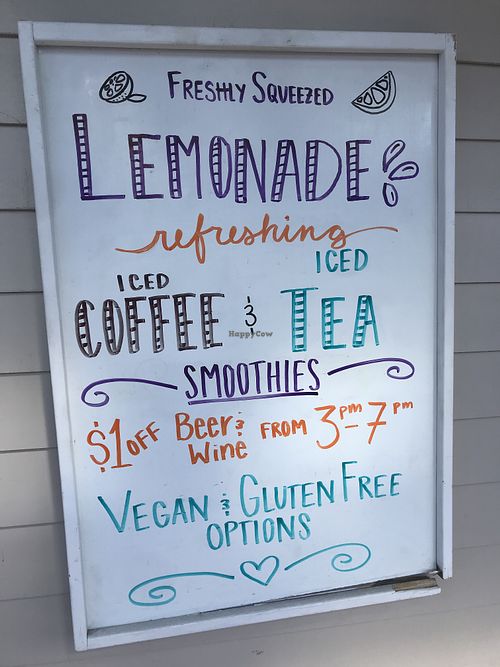 FRESHLY SQUEEZED
LEMONADE
refreshing
ICED
ICED
COFFEE & TEA
HappyCow
SMOOTHIES
$1 OFF Beer & Wine FROM 3pm-7pm
VEGAN & GLUTEN FREE
OPTIONS